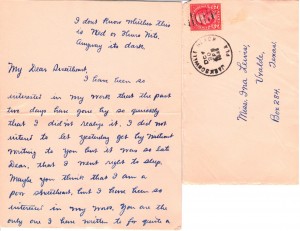 I dont know whether this
is Wed or thurs nite.
Anyway its dark.
My Dear Sweetheart:
I have been so
interested in my work that the past
two days have gone by so quickly
that I didn't realize it. I did not
intend to let yesterday get by without
writing to you but it was so late
Dear, that I went right to sleep.
Maybe you think that I am a
poor Sweetheart, but I have been so
interested in my work. You are the
only one I have written to for quite a
Miss Ina Lewis,
Uvalde,
Box 284. Texas.